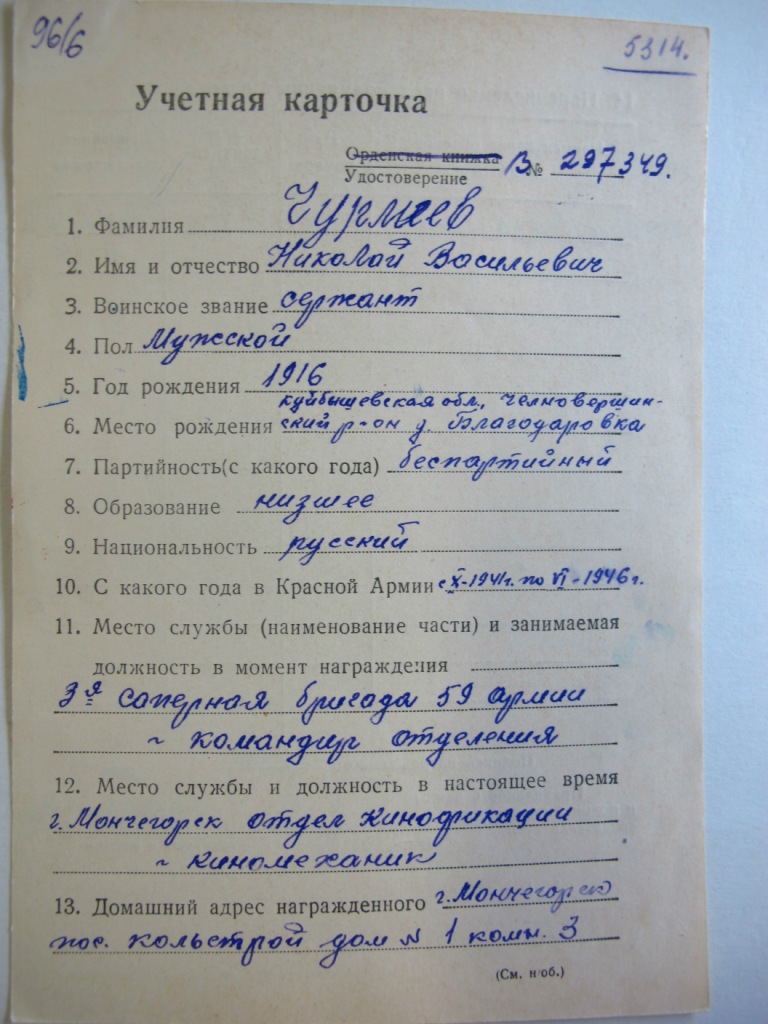 96/6
5314.
Учетная карточка
Орденская книжка
Удостоверение В № 297349.
1. Фамилия Чурмеев
2. Имя и отчество Николай Васильевич
3. Воинское звание сержант
4. Пол Мужской
5. Год рождения 1916
куйбышевская обл., Челновершин-
6. Место рождения ский р-он д. Благодаровка
7. Партийность(с какого года) беспартийный
8. Образование низшее
9. Национальность русский
10. С какого года в Красной Армии с X-1941г. по VI-1946г.
11. Место службы (наименование части) и занимаемая
должность в момент награждения
3я саперная бригада 59 армии
~ командир отделения
12. Место службы и должность в настоящее время
г. Мончегорск отдел Кинофикации
~ киномеханик
13. Домашний адрес награжденного г. Мончегорск
пос. кольстрой дом № 1 комн. 3
(См. н/об.)